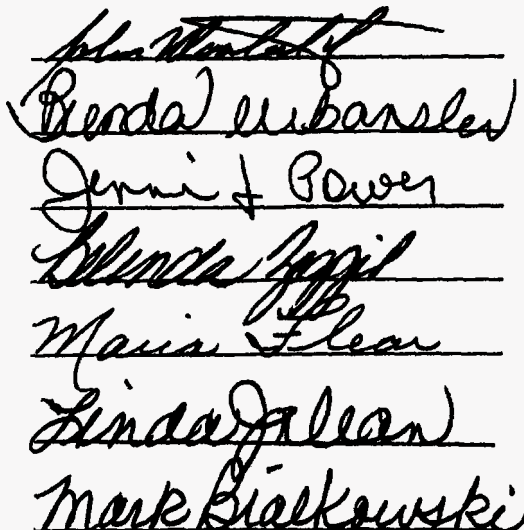 John
Brenda Urbansley
Jenni L Power
Belinda
Maria Flear
Linda Jalean
Mark Bialkowski